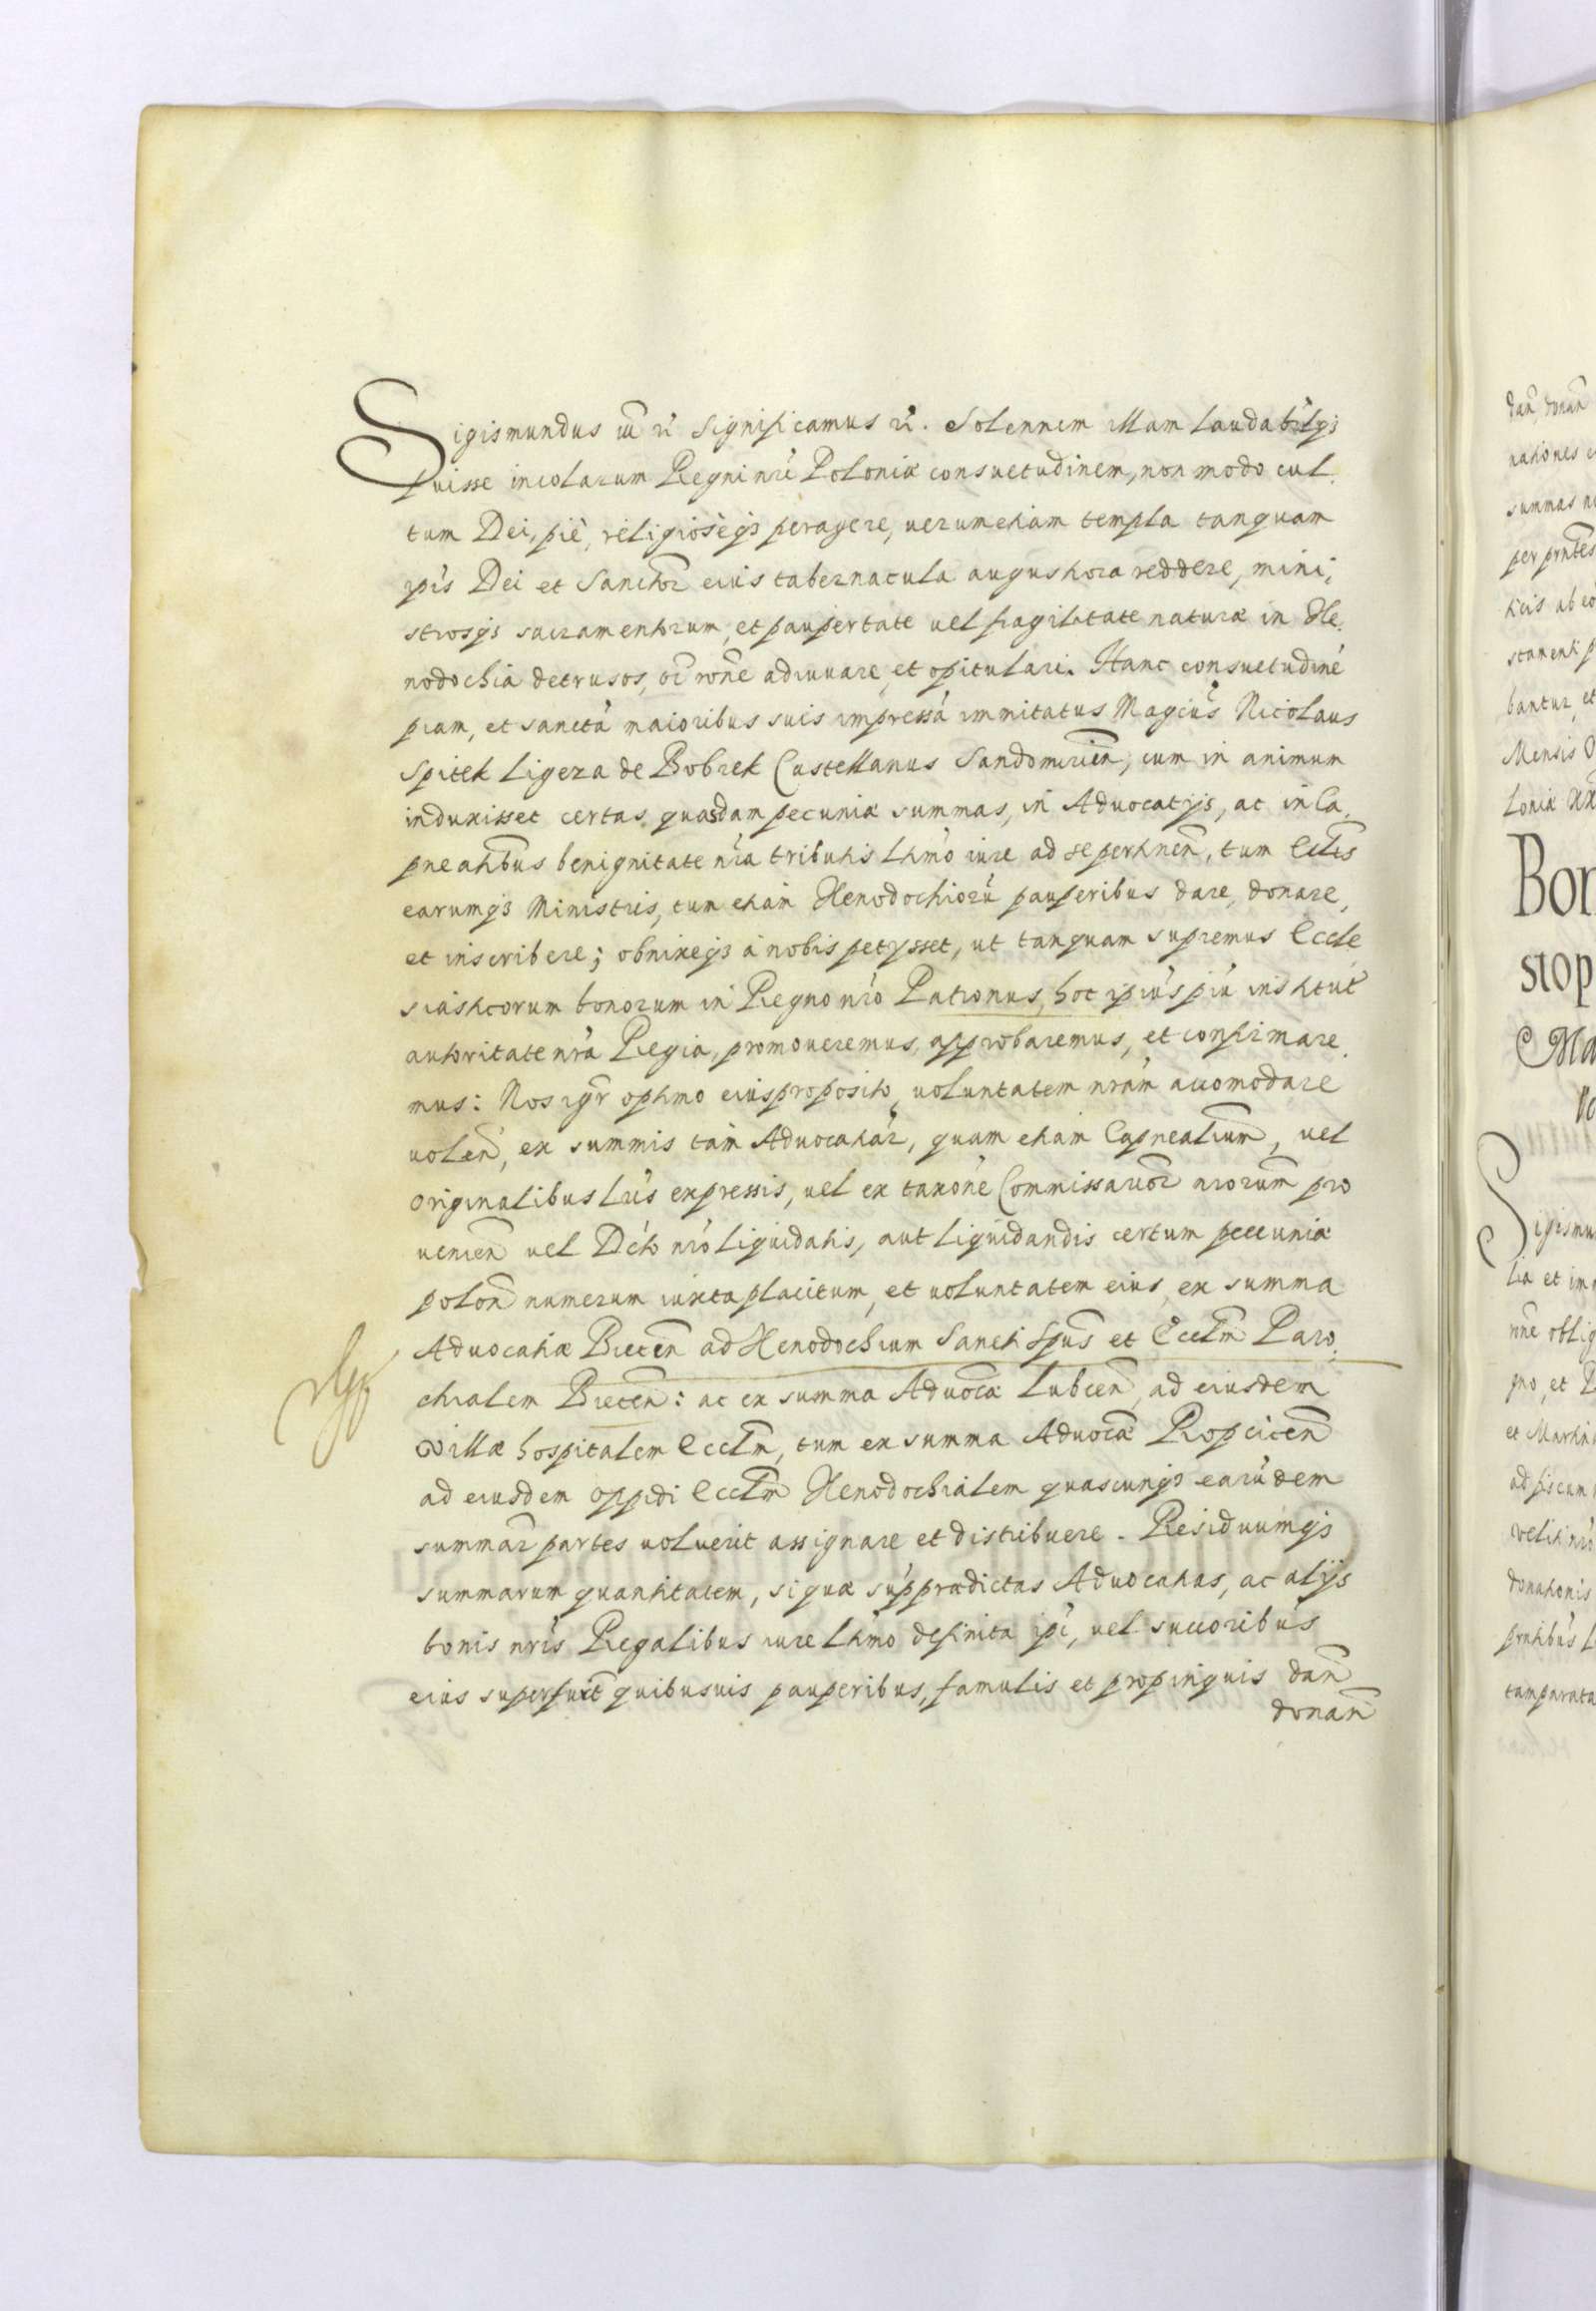 Sigismundus iii rć significamus rć. Solennem illam laudabilẽqȝ
fuisse incolarum Regni nri Poloniæ consuetudinem, non modo cul,
tum Dei, piè, religiosèqȝ peragere, uerumetiam templa tanquam
ipis Dei et Sanctor eius tabernacula augustiora reddere, mini,
strosqȝ sacramentorum, et paupertate uel fragilitate naturæ in Xe,
nodochia detrusos, oi rone adiuuare, et opitulari. Hanc consuetudinẽ
piam, et sanctã maioribus suis impressã immitatus Magcus Nicolaus
Spitek Ligeza de Bobrek Castellanus Sandomirien̄, cum in animum
induxisset certas quasdam pecuniæ summas, in Aduocatijs, ac in Ca,
pneatibus benignitate nra tributis lttmo iure ad se pertinen̄, tum Eccliis
earumqȝ Ministris, tum etiam Xenodochiorũ pauperibus dare, donare,
et inscribere; obnixeqȝ à nobis petijsset, ut tanquam supremus Eccle,
siasticorum bonorum in Regno nro Patronus, hoc ipius piũ institutũ
autoritate nra Regia, promoueremus, approbaremus, et confirmare,
mus: Nos igr optimo eius proposito, uoluntatem nram accomodare
uolen̄, ex summis tam Aduocatiar, quam etiam Capnealium, uel
originalibus lris expressis, uel ex taxone Commissarior nrorum pro
uenien̄ uel Dcto nro liquidatis, aut liquidandis certum peccuniæ
polon̄ numerum iuxta placitum, et uoluntatem eius, ex summa
Aduocatiæ Biecen̄ ad Xenodochium Sancti Spus et Ecclm Paro,
chialem Biecen̄: ac ex summa Aduocæ Lubcen̄, ad eiusdem
Villæ hospitalem Ecclm, tum ex summa Aduocæ Ropcicen̄
ad eiusdem oppidi Ecclm Xenodochialem quascunqȝ earũdem
summar partes uoluerit assignare et distribuere. Residuumqȝ
summarum quantitatem, si quæ sup prædictas Aduocatias, ac alijs
bonis nris Regalibus iure lttmo definita ipi, uel succoribus
eius superfuerit quibusuis pauperibus, famulis et propinquis dan̄
donan̄
dan̄, donan̄
nationes
summas
per prntes
Mensis
loniæ
Bor
siop
Ma
Sigismu
lia et im
gno, et
ad fiscum
velit nro
donationis